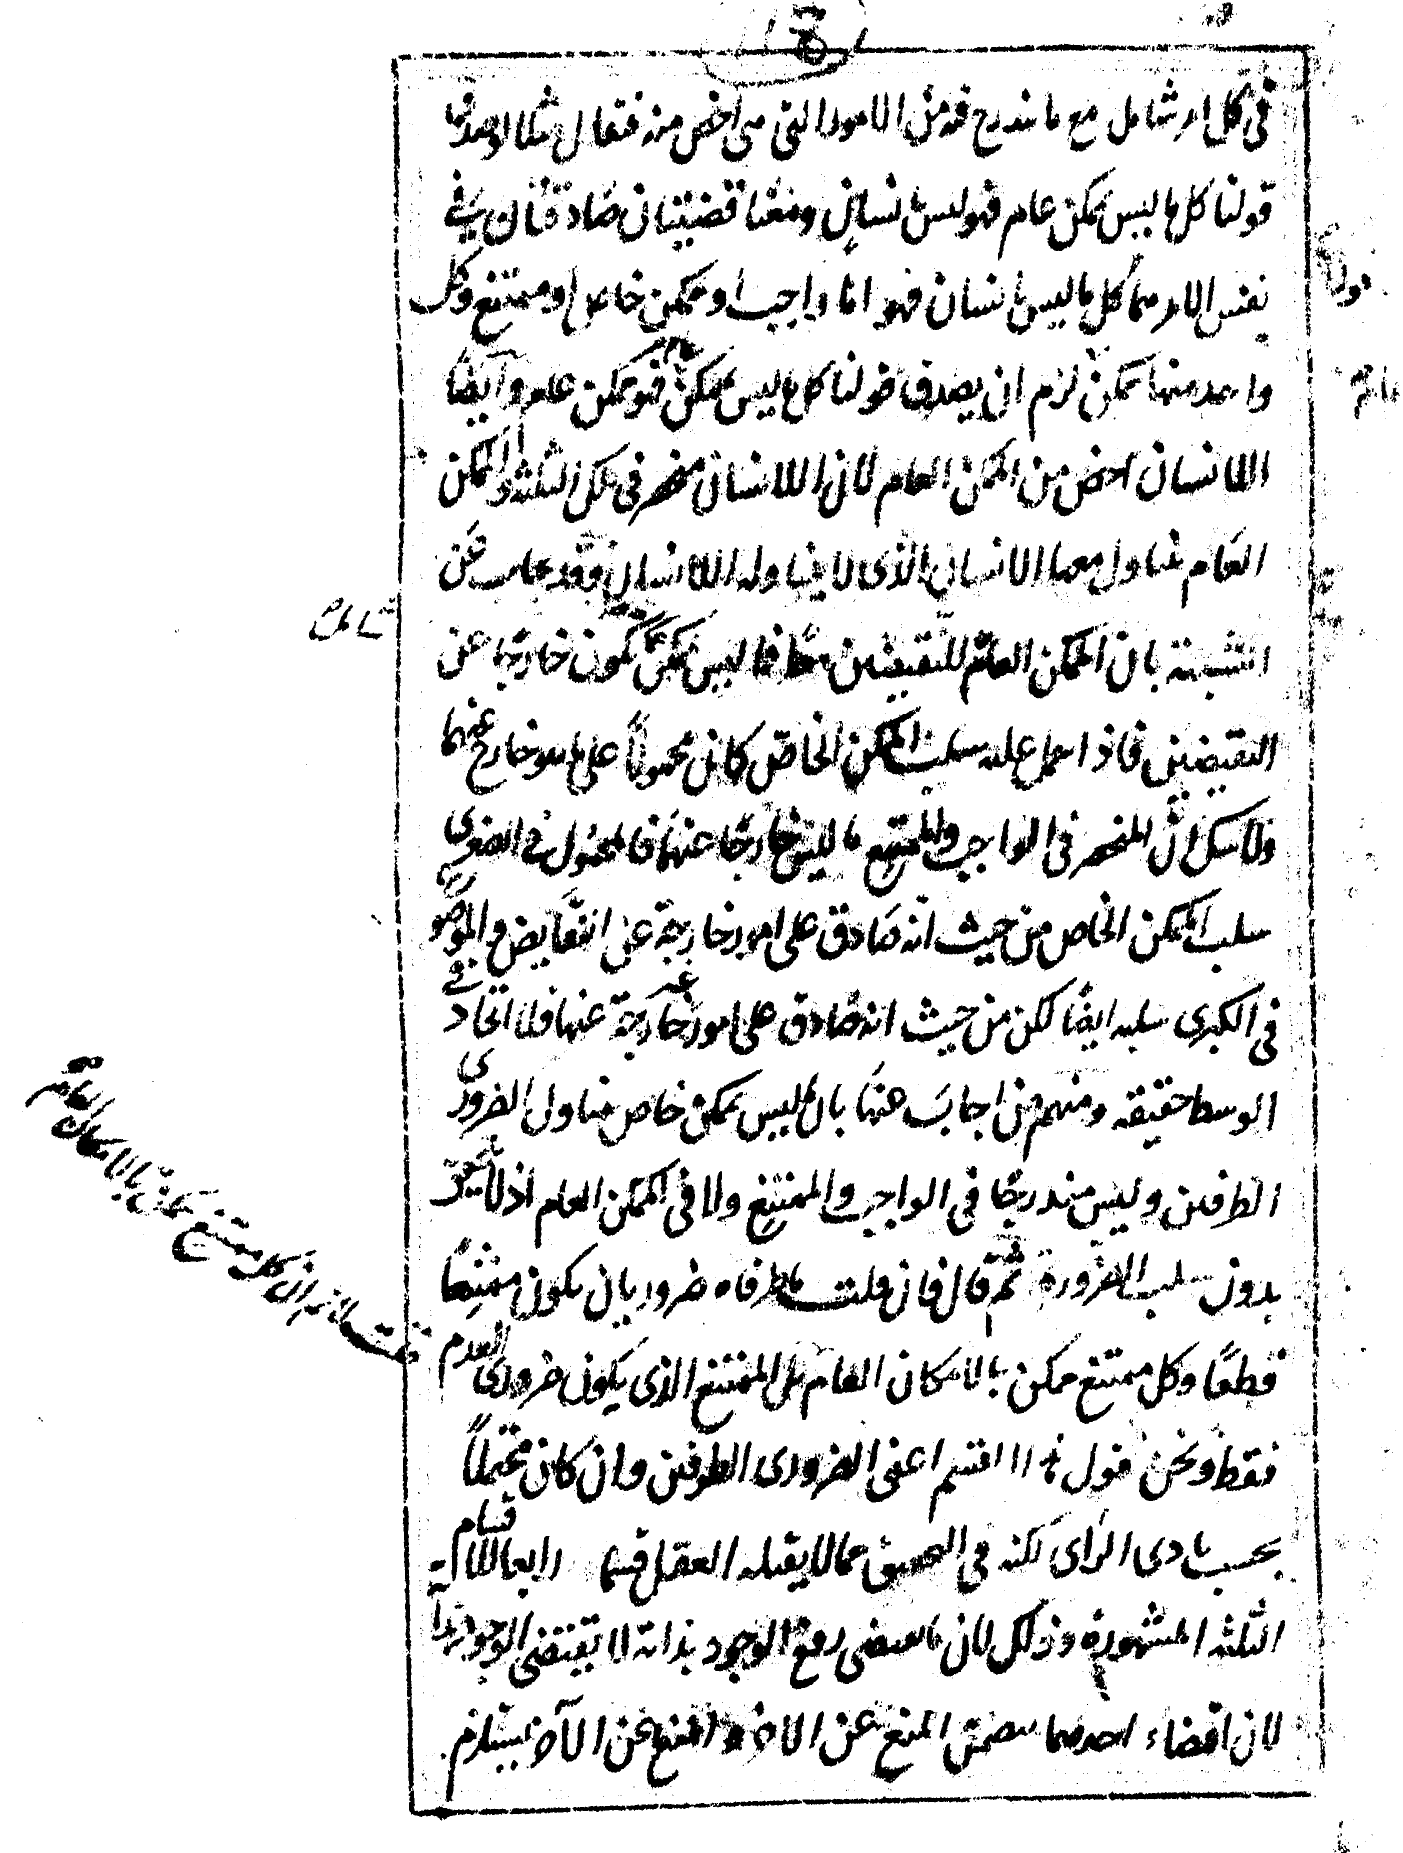 في كل امر شامل مع ما يندرج فيه من الامور التي هي اخص منه فيقال مثلا لو صدق
قولنا كل ما ليس بممكن عام فهو ليس بانسان ومعنا قضيتان صادقتان في
نفس الامر هما كل ما ليس بانسان فهو اما واجب او ممكن خاص او ممتنع وكل
واحد منها ممكن لزم ان يصدق قولنا كل ما ليس بممكن فهو ممكن عام وايضا
اللاانسان اخص من الممكن العام لان اللاانسان منحصر في تلك الثلثة والممكن
العام يتناول معها الانسان الذي لا يتناوله اللاانسان وقد يجاب عن
الشبهة بان الممكن العام للنقيضين معا فما ليس بممكن يكون خارجا عن
النقيضين فاذا حمل عليه سلب الممكن الخاص كان محمولا على ما هو خارج عنهما
ولا شك ان المنحصر في الواجب والممتنع ما ليس خارجا عنهما فالمحمول في الصغرى
سلب الممكن الخاص من حيث انه صادق على امور خارجة عن النقايض والموضوع
في الكبرى سلبه ايضا لكن من حيث انه صادق على امور غير خارجة عنها فلا اتحاد في
الوسط حقيقه ومنهم من اجاب عنها بان ما ليس بممكن خاص متناول لضروري
الطرفين وليس مندرجا في الواجب والممتنع ولا في الممكن العام اذ لا يتحقق
بدون سلب الضرورة ثم قال فان قلت ما طرفاه ضروريان يكون ممتنعا
قطعا وكل ممتنع ممكن بالامكان العام بل الممتنع الذي يكون ضروري العدم
فقط ونحن نقول هذا القسم اعني الضروري الطرفين وان كان محتملا
بحسب بادي الراي لكنه في التحقيق مما لا يقبله العقل قسما رابعا للاقسام
الثلثه المشهورة وذلك لان ما يقتضي رفع الوجود بذاته لا يقتضي الوجود
لان اقتضاء احدهما يتضمن المنع عن الاخر والمنع عن الآخر يستلزم
شامل
قلت لا نم ان كل ممتنع ممكن بالامكان العام